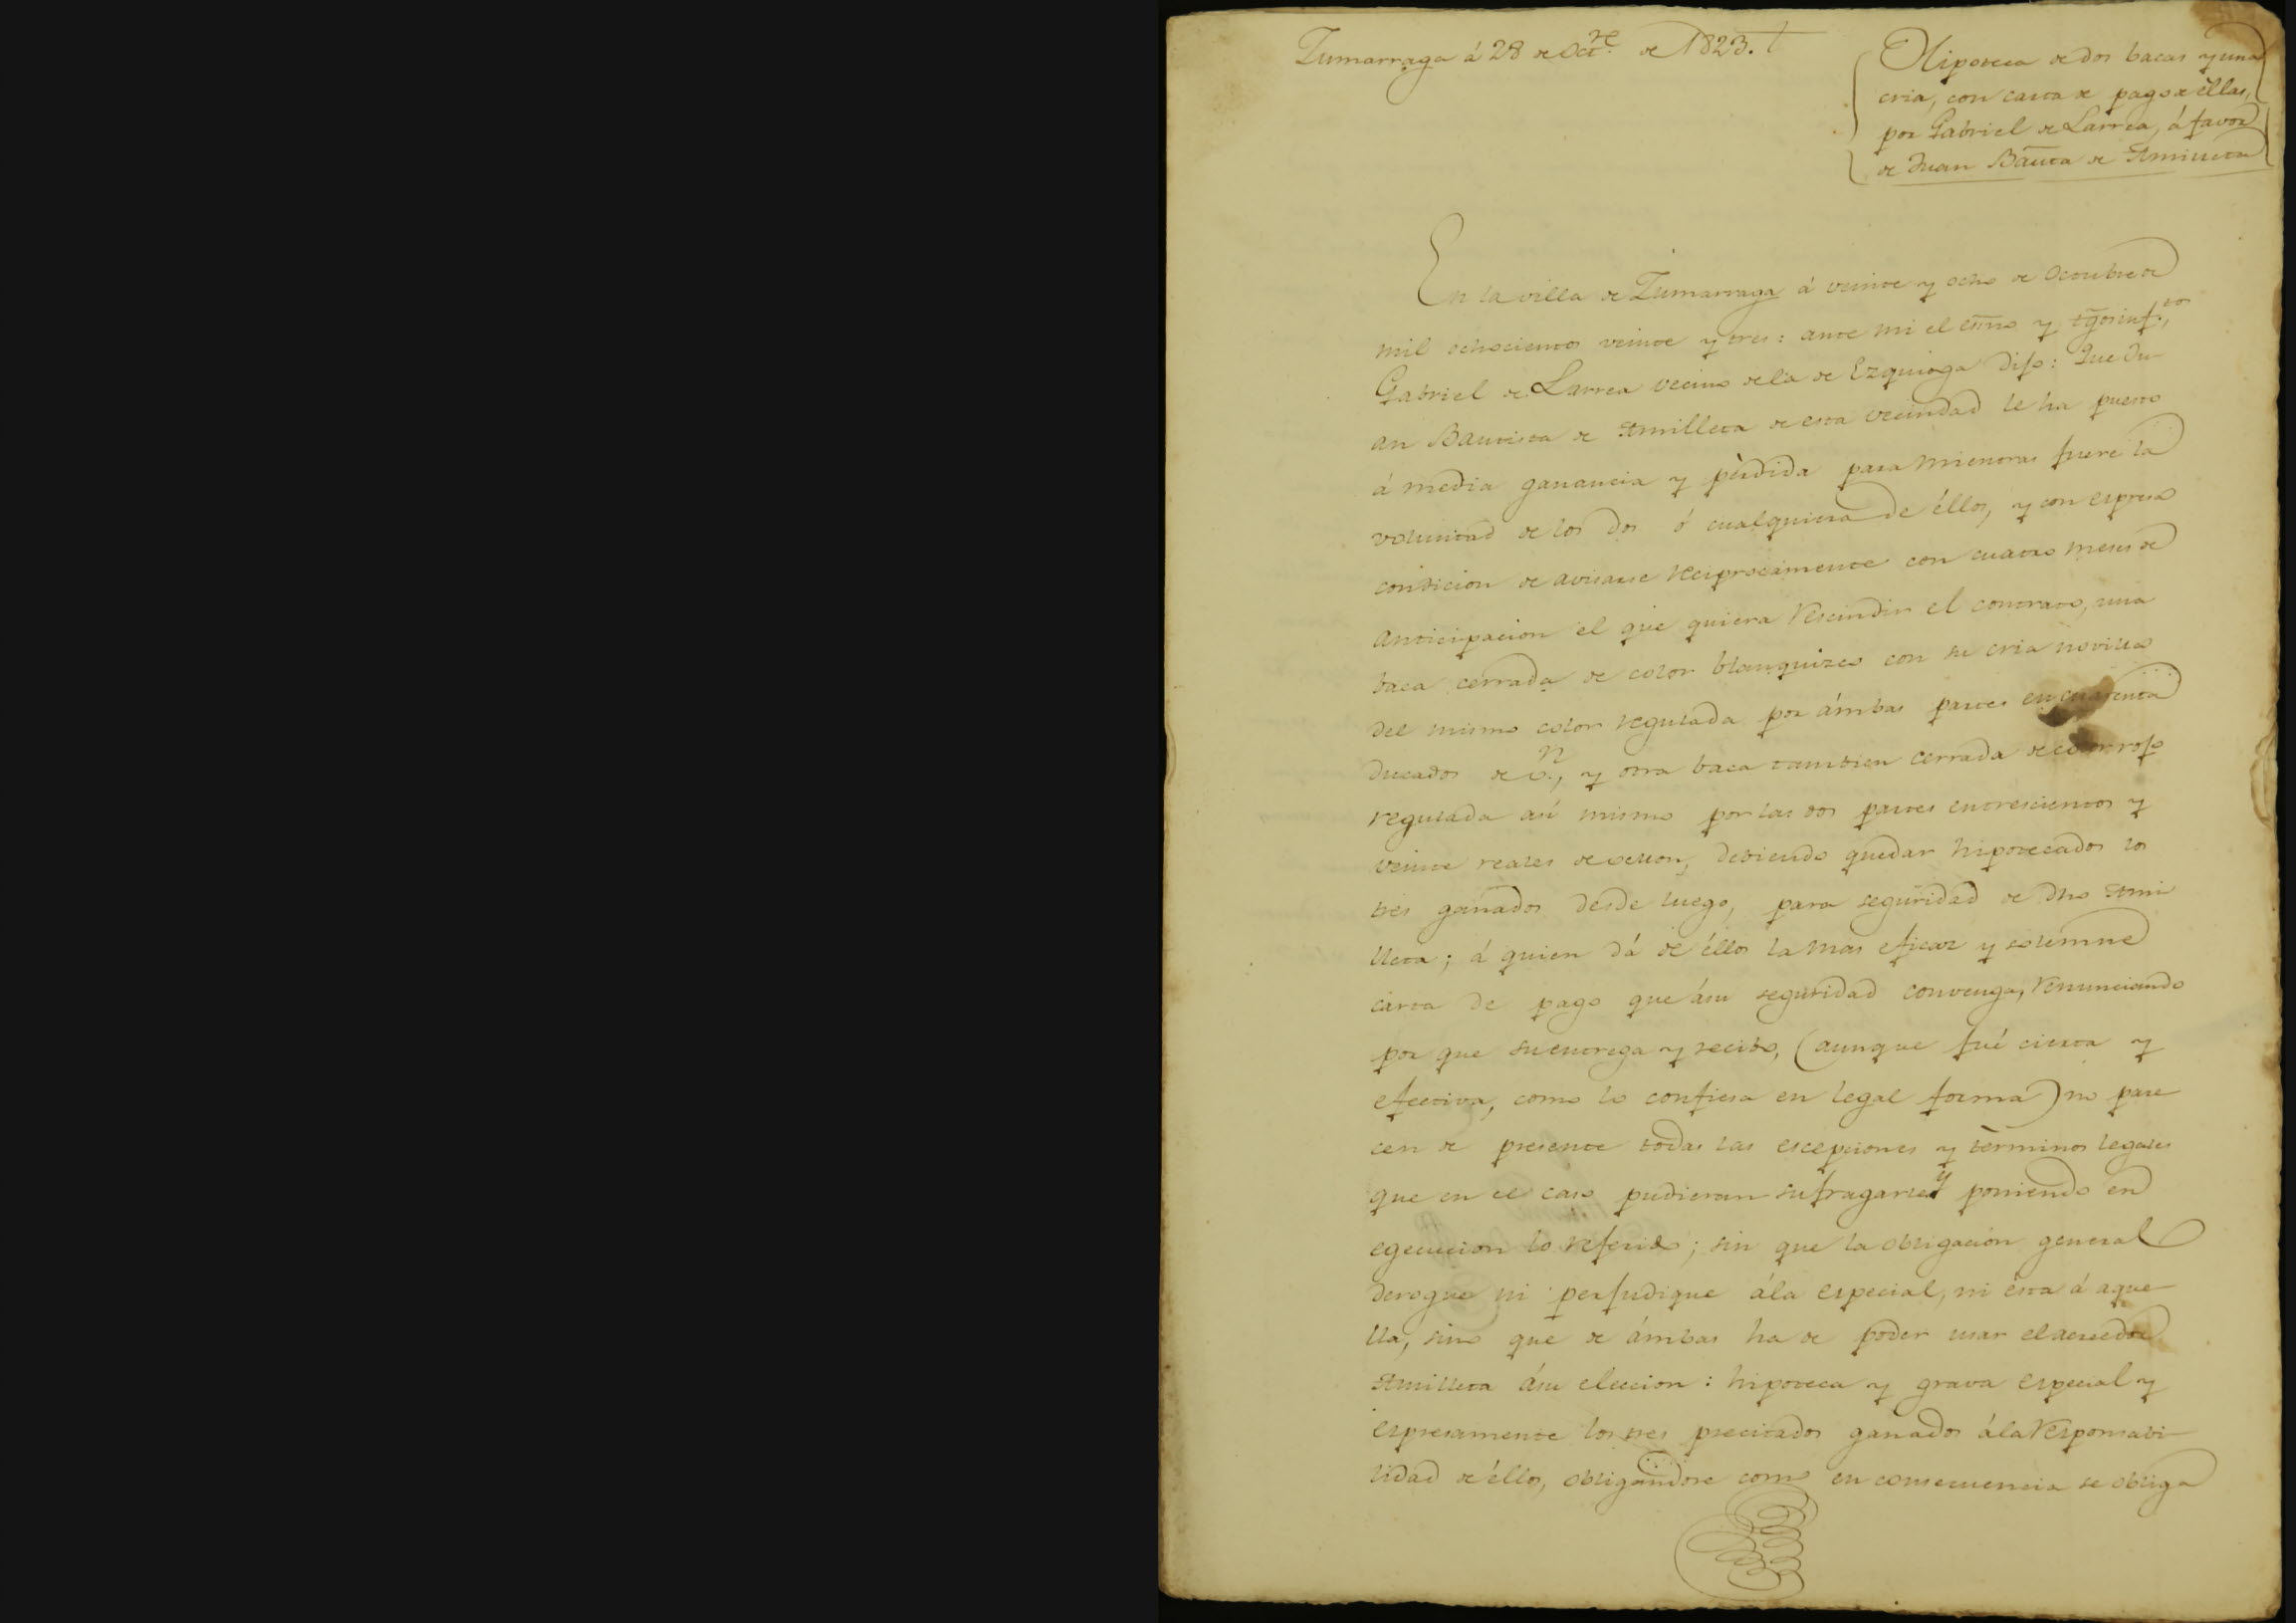 Zumarraga á 28 de Oct.re de 1823.
Hipoteca de dos bacas y una
cria, con carta de pago de éllas,
por Gabriel de Larrea, á favor
de Juan Bauta de Amilleta
En la villa de Zumarraga á veinte y ocho de Octubre de
mil ochocientos veinte y tres: ante mi el esno y tgos inf.tos,
Gabriel de Larrea vecino de la de Ezquioga dijo: Que Ju-
an Bautista de Amilleta de esta vecindad le ha puesto
á media ganancia y pérdida para mientras fuere la
voluntad de los dos ó cualquiera de éllos, y con espresa
condicion de avisarse reciprocamente con cuatro meses de
anticipacion el que quiera rescindir el contrato, una
baca cerrada de color blanquizco con su cria novilla
del mismo color regulada por ámbas partes en cuarenta
ducados de v.n, y otra baca tambien cerrada de color rojo
regulada asi mismo por las dos partes en trescientos y
veinte reales de vellon, debiendo quedar hipotecados los
tres ganados desde luego, para seguridad de dho Ami
lleta; á quien dá de éllos la mas eficaz y solemne
carta de pago que ásu seguridad convenga, renunciando
por que su entrega y recibo, (aunque fué cierta y
efectiva, como lo confiesa en legal forma) no pare
cen de presente todas las escepciones y términos legales
que en el caso pudieran sufragarle y poniendo en
egecucion lo referido; sin que la obligacion general
derogue ni perjudique ála especial, ni ésta á aque-
lla, sino que de ámbas ha de poder usar el acreedor
Amilleta ásu eleccion: hipoteca y grava especial y
espresamente los tres precitados ganados ála responsabi-
lidad de éllos, obligandose como en consecuencia se obliga